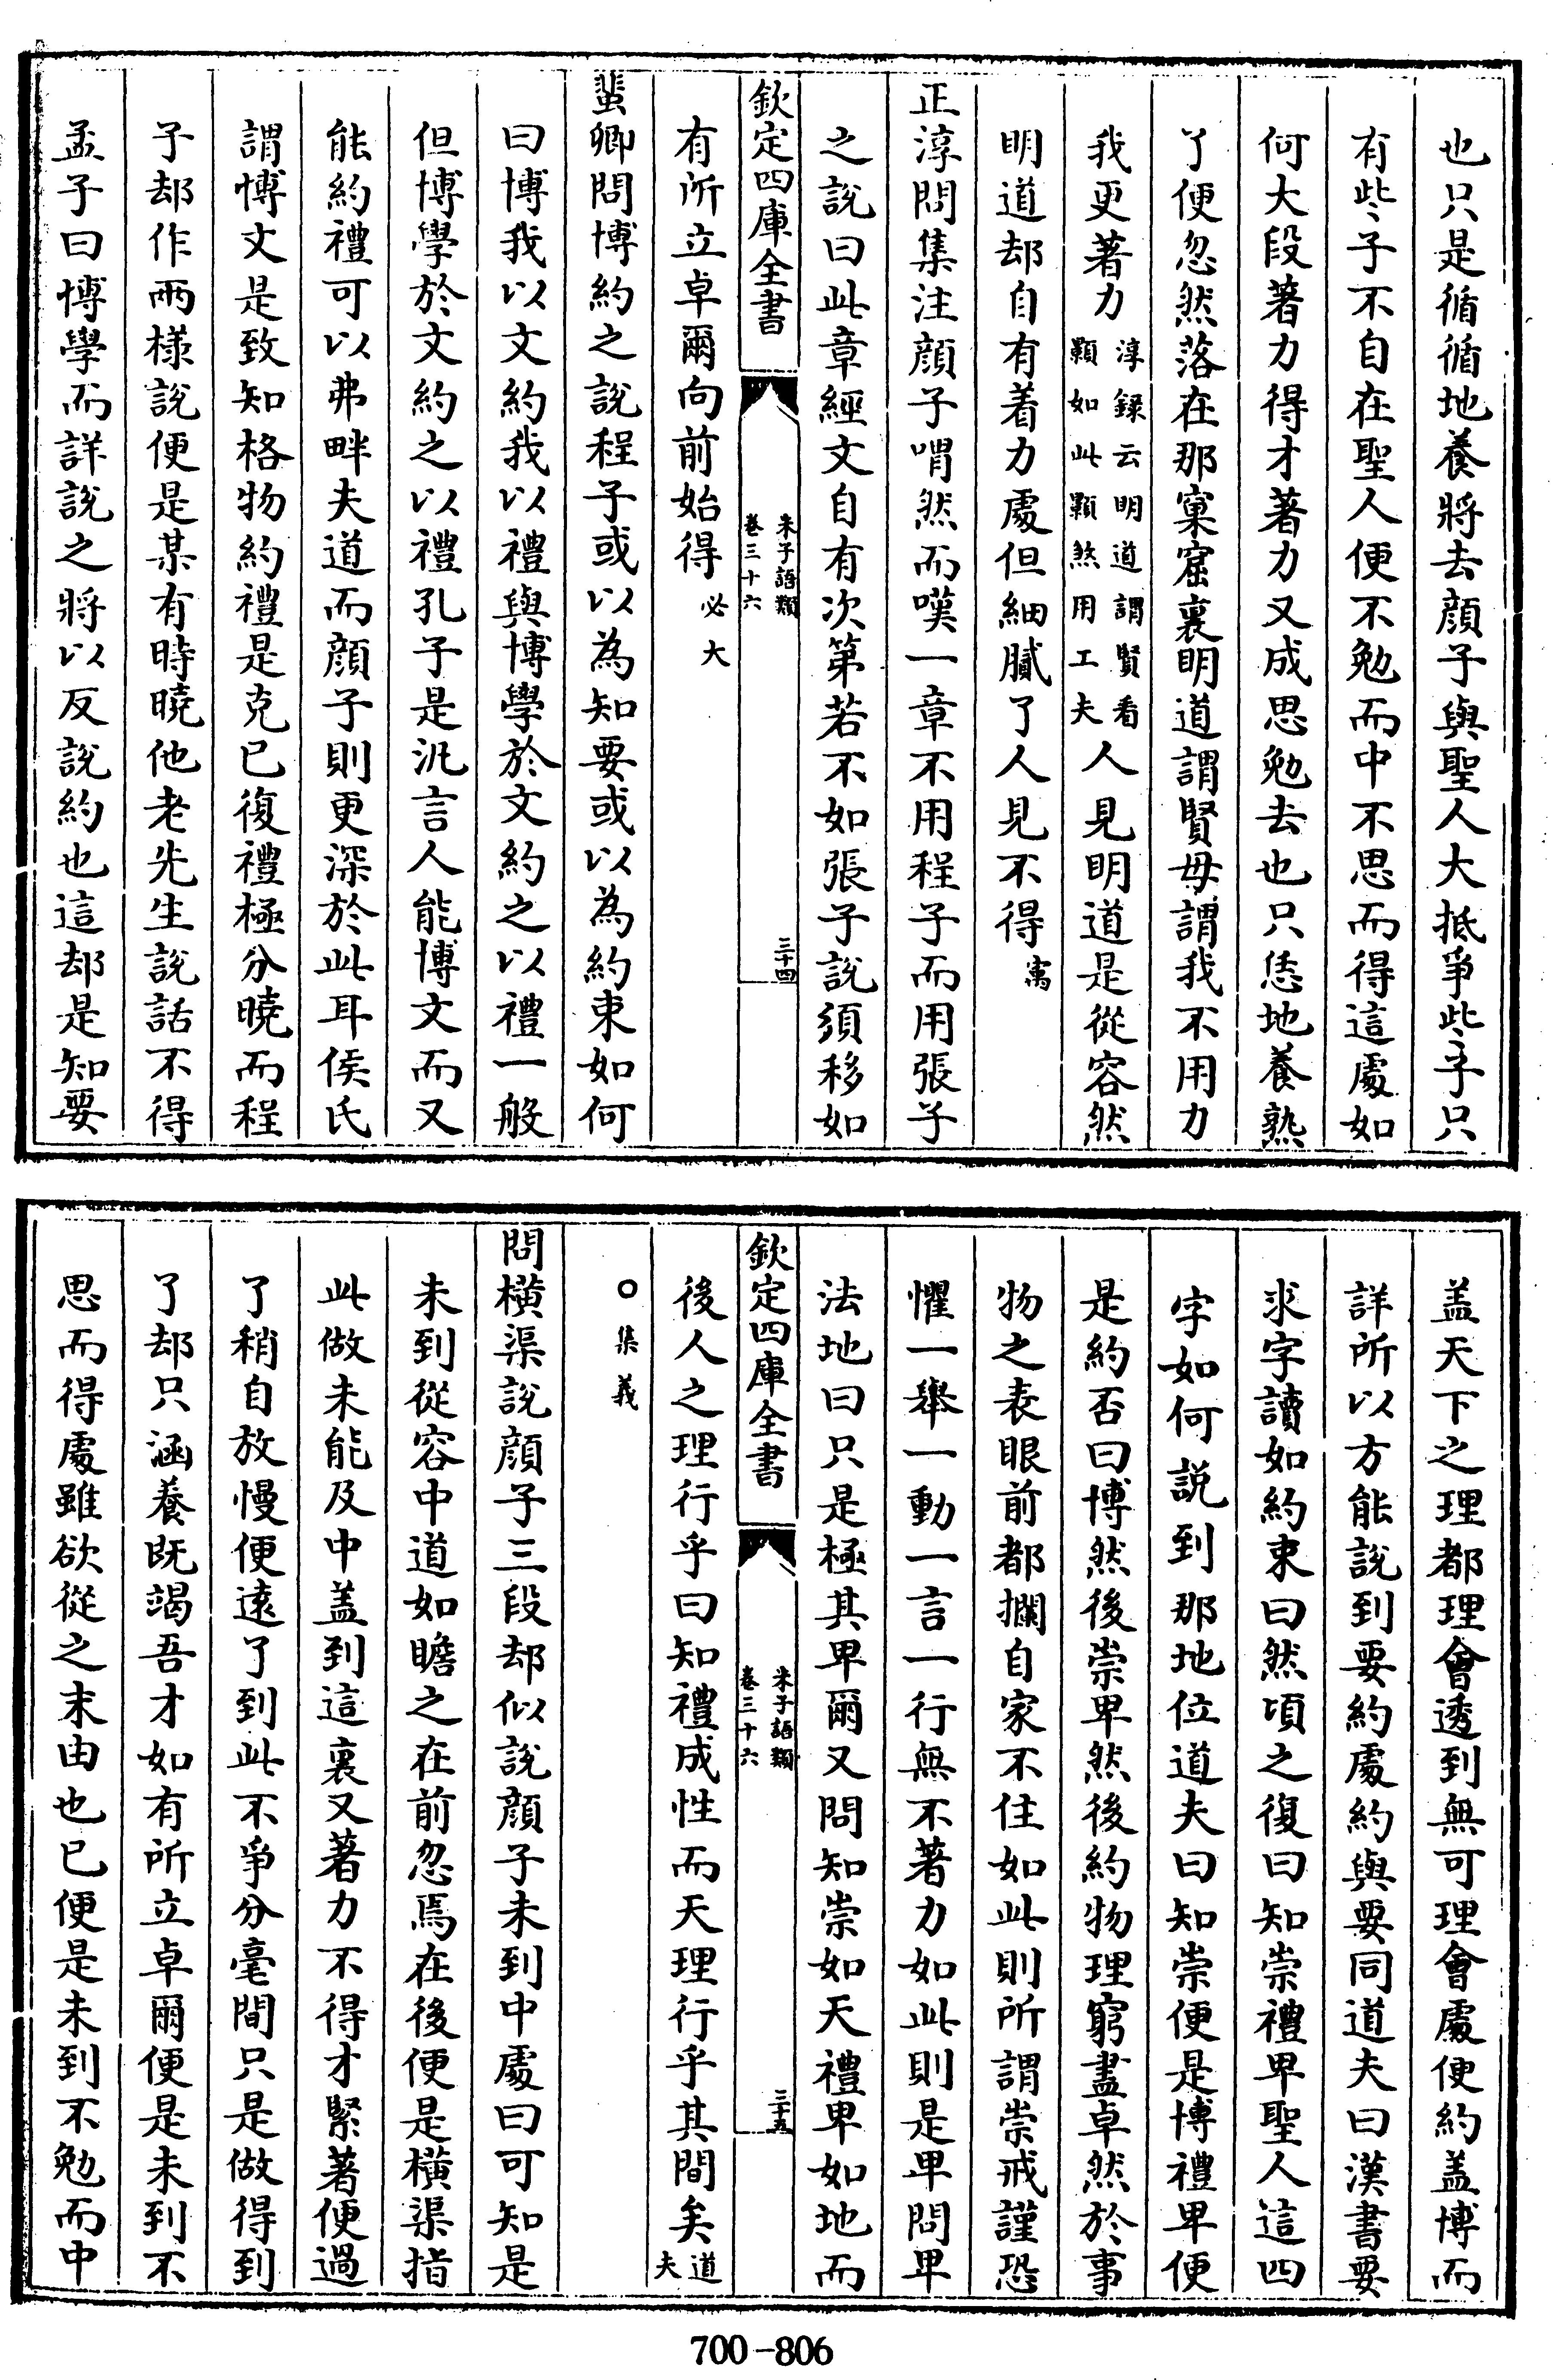 也只是循循地養將去顔子與聖人大抵爭些子只
有些子不自在聖人便不勉而中不思而得這處如
何大段著力得才著力又成思勉去也只恁地養熟
了便忽然落在那窠窟裏明道謂賢毋謂我不用力
我更著力淳録云明道謂賢看顥如此顥煞用工夫人見明道是從容然
明道却自有着力處但細膩了人見不得㝢
正淳問集注顔子喟然而嘆一章不用程子而用張子
之說曰此章經文自有次第若不如張子說須移如
欽定四庫全書
朱子語類
卷三十六
三十四
有所立卓爾向前始得必大
蜚卿問博約之說程子或以為知要或以為約束如何
曰博我以文約我以禮與博學於文約之以禮一般
但博學於文約之以禮孔子是汎言人能博文而又
能約禮可以弗畔夫道而顔子則更深於此耳侯氏
謂博文是致知格物約禮是克已復禮極分曉而程
子却作兩様說便是某有時曉他老先生說話不得
孟子曰博學而詳說之將以反說約也這却是知要
盖天下之理都理會透到無可理會處便約盖博而
詳所以方能說到要約處約與要同道夫曰漢書要
求字讀如約束曰然頃之復曰知崇禮卑聖人這四
字如何説到那地位道夫曰知崇便是博禮卑便
是約否曰博然後崇卑然後約物理窮盡卓然於事
物之表眼前都攔自家不住如此則所謂崇戒謹恐
懼一舉一動一言一行無不著力如此則是卑問卑
法地曰只是極其卑爾又問知崇如天禮卑如地而
欽定四庫全書
朱子語類
卷三十六
三十五
後人之理行乎曰知禮成性而天理行乎其間矣道夫
○集義
問橫渠說顔子三段却似說顔子未到中處曰可知是
未到從容中道如瞻之在前忽焉在後便是橫渠指
此做未能及中盖到這裏又著力不得才緊著便過
了稍自放慢便逺了到此不爭分毫間只是做得到
了却只涵養既竭吾才如有所立卓爾便是未到不
思而得處雖欲從之末由也已便是未到不勉而中
700-806